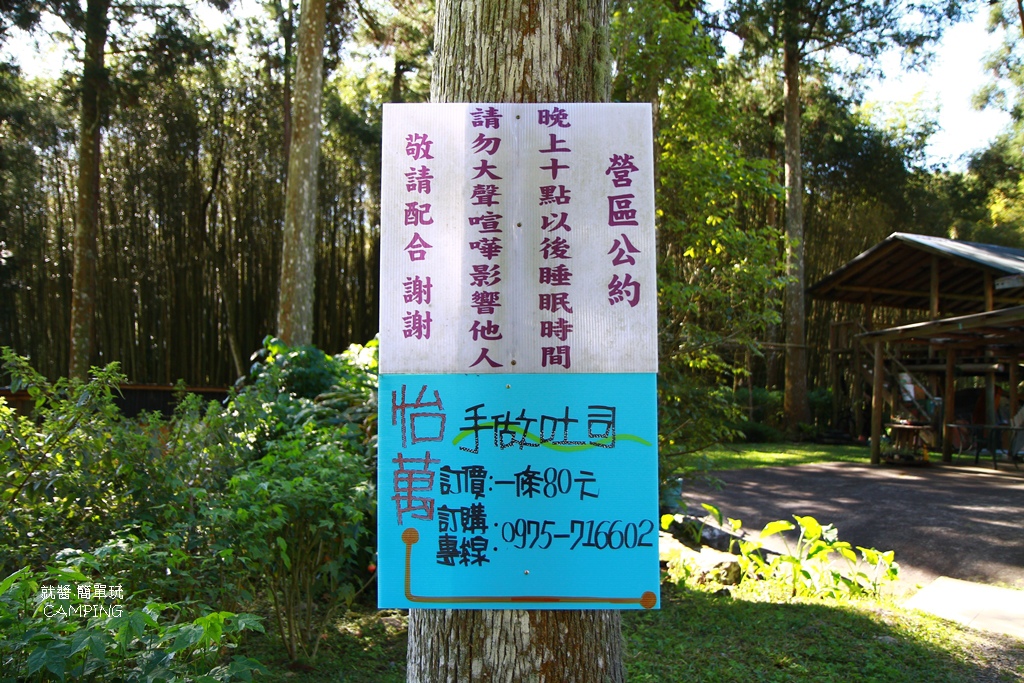 營區公約
晚上十點以後睡眠時間
請勿大聲喧嘩影響他人
敬請配合 謝謝
怡萬
手做吐司
訂價:一條80元
訂購專線:0975-716602
就醬·簡單玩
CAMPING